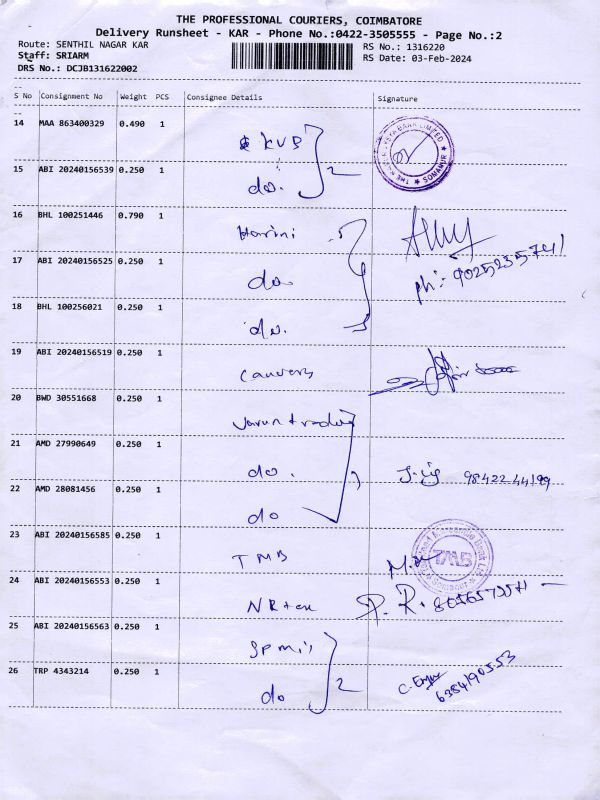 THE PROFESSIONAL COURIERS, COIMBATORE
Delivery Runsheet - KAR - Phone No.:0422-3505555 - Page No.:2
Route: SENTHIL NAGAR KAR
RS No.: 1316220
Staff: SRIARM
RS Date: 03-Feb-2024
DRS No.: DCJB131622002
S No Consignment No Weight PCS Consignee Details Signature
14 MAA 863400329 0.490 1 KVB
15 ABI 20240156539 0.250 1 do. 2
16 BHL 100251446 0.790 1 Harini
17 ABI 20240156525 0.250 1 do ph: 9025235741
18 BHL 100256021 0.250 1 do.
19 ABI 20240156519 0.250 1
20 BWD 30551668 0.250 1 Varun
21 AMD 27990649 0.250 1 do. 9842244199
22 AMD 28081456 0.250 1 do
23 ABI 20240156585 0.250 1 TMB TMB
24 ABI 20240156553 0.250 1 P. R.
25 ABI 20240156563 0.250 1
26 TRP 4343214 0.250 1 do 2 6384190553